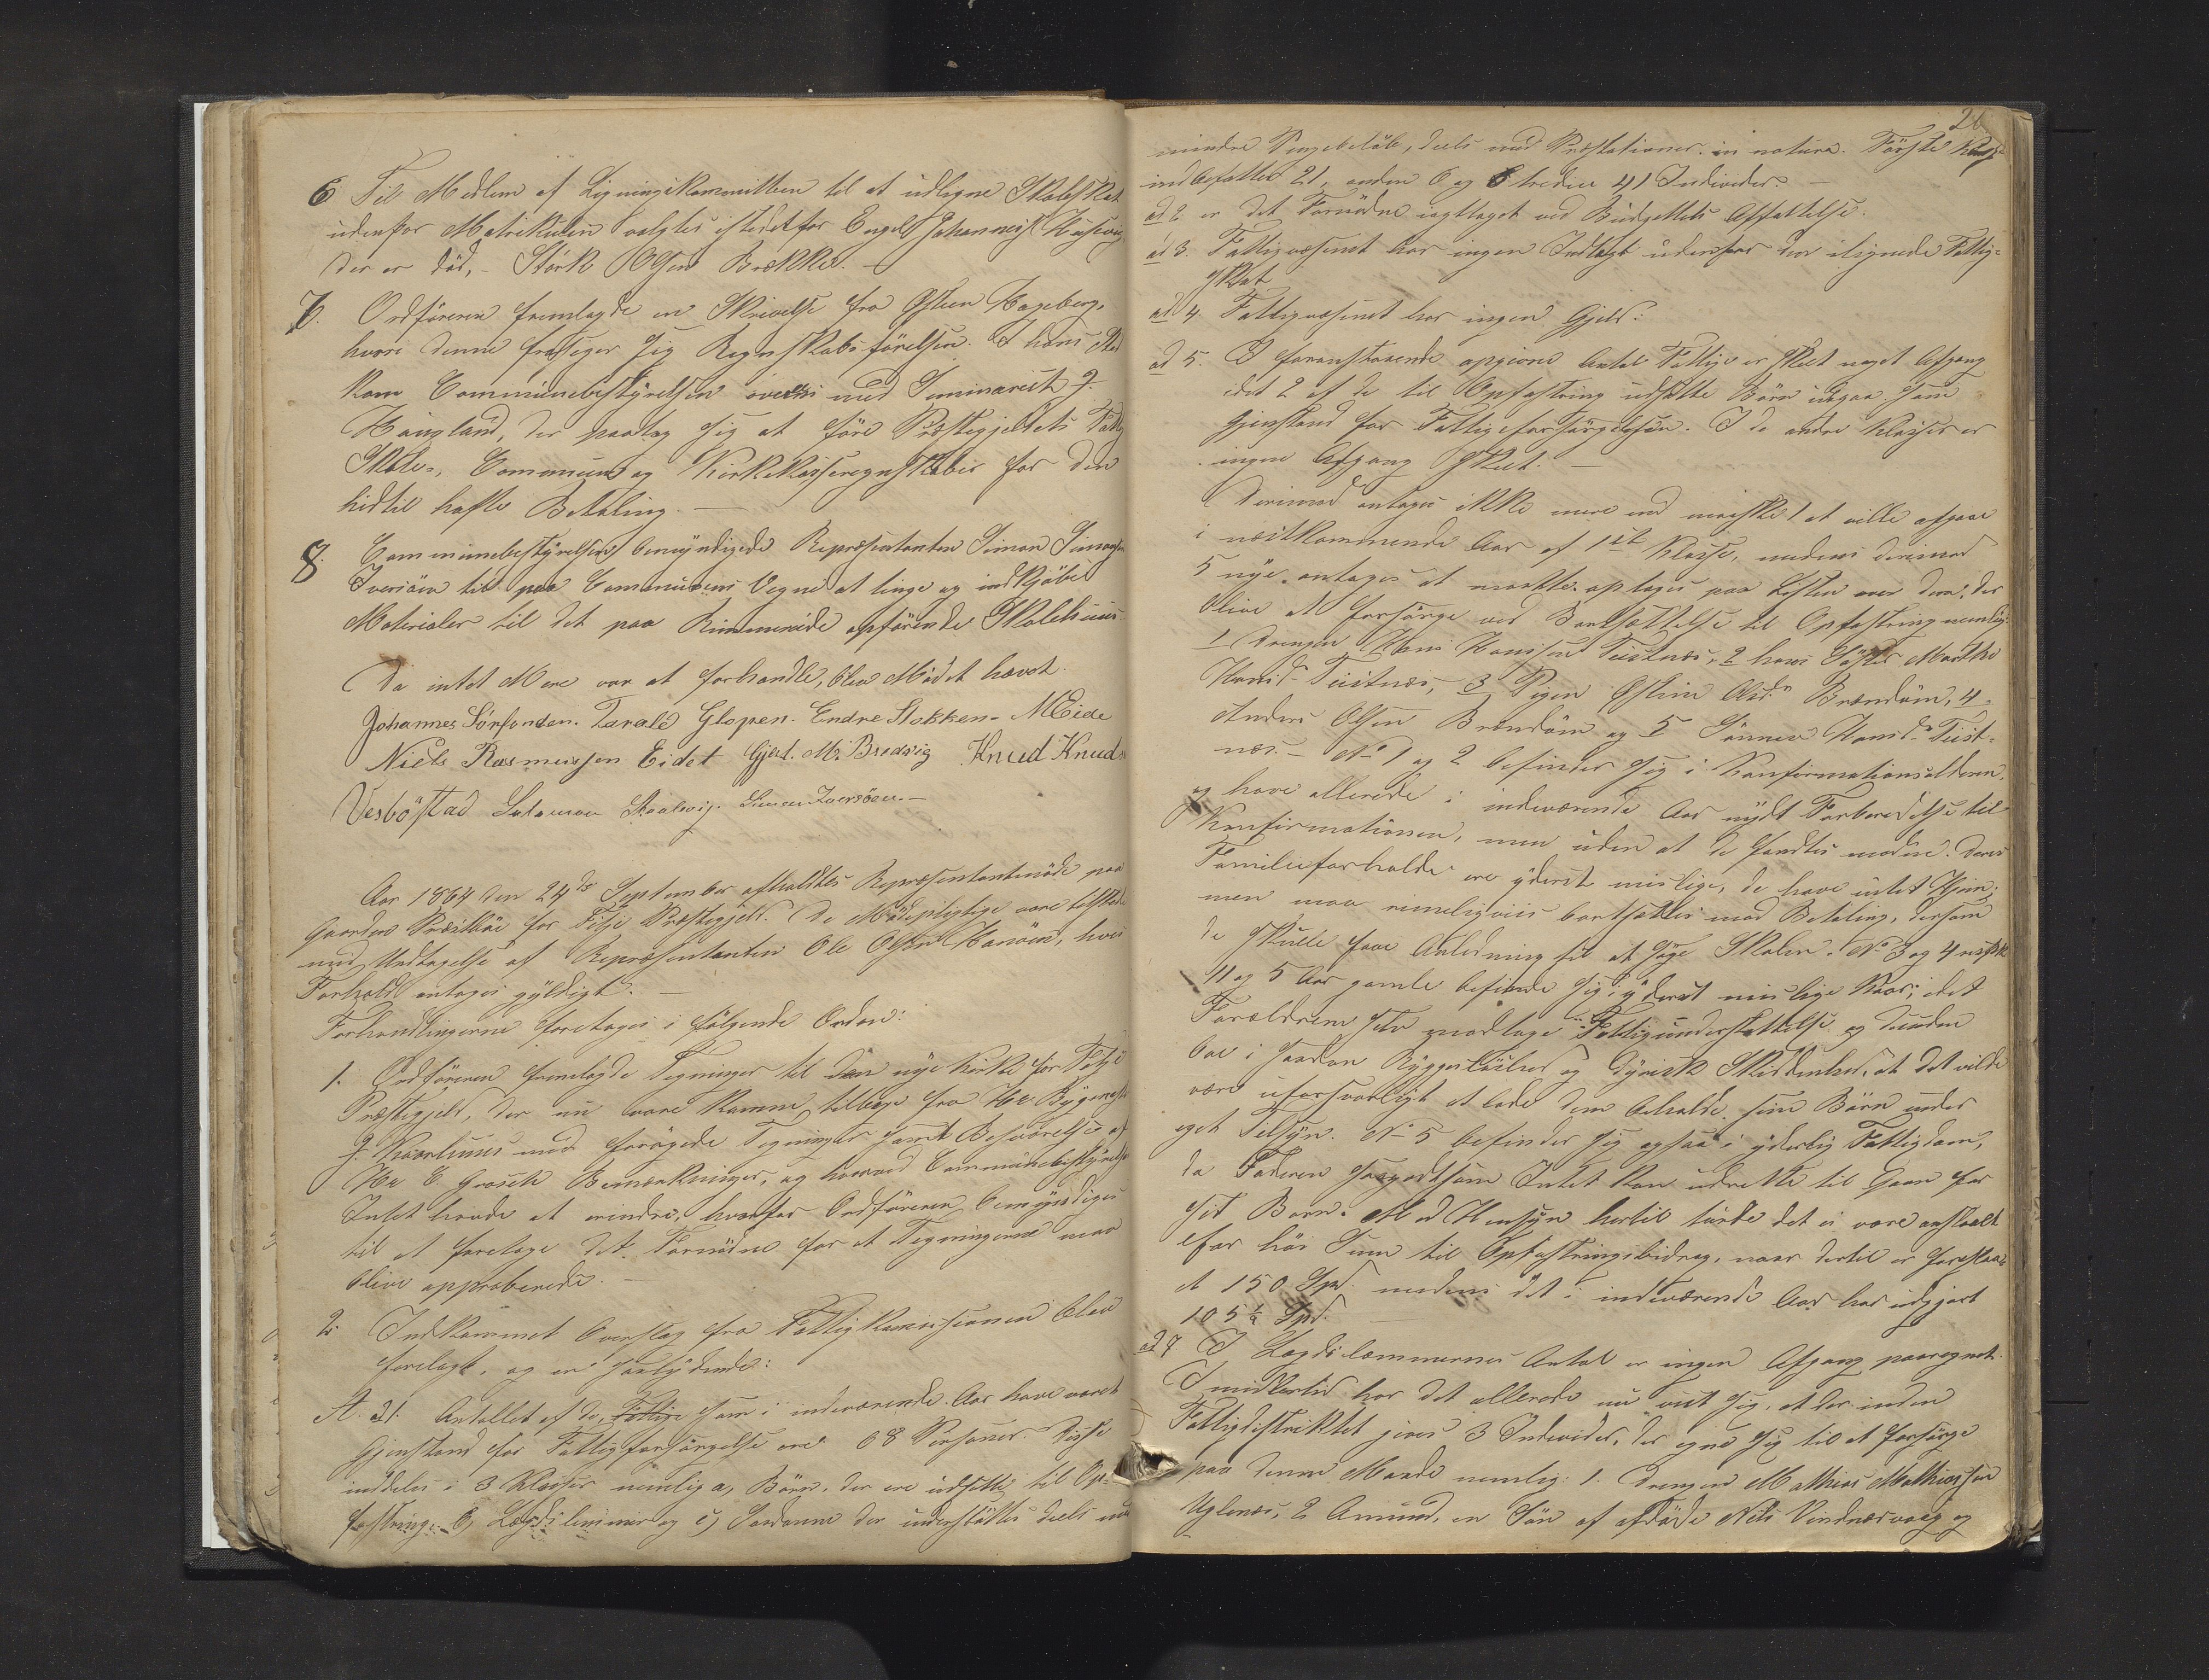 6 Til Medlem af Ligningskommitteen til at udligne Skoleskat
udenfor Matrikulen valgtes istedetfor Engel Johannes
der er död, - Störk Olsen Brække. -
7. Ordföreren fremlagde en Skrivelse fra Østen Hageberg,
hvori denne frasiger sig Regnskabsförelsen. I hans Sted
kom Communebestyrelsen overens med Seminarist J.
Haugland, der paatog sig at före Præstegjeldets Fattig
Skole-, Commune og Kirkekasseregnskaber for den
hidtil hafte Betaling. -
8. Communebestyrelsen bemyndigede Repræsentanten Simon Simonsen
Iversöen til paa Communens Vegne at tinge og indkjöbe
Materialer til det paa Rimmereide opförende Skolehuus.
Da intet Mere var at forhandle, blev Mödet hævet.
Johannes Sörfonden. Tarald Glopen. Endre Stokken. MEide
Niels Rasmussen Eidet Gjert. M. Bredvig Knud Knuds
Vesböstad Salamon Skaalevig. Simon Iversöen. -
Aar 1864 den 24de September afholdtes Repræsentantmöde paa
Gaarden Præstböe for Fitje Præstegjeld. De Mödepligtige vare tilstede
med Undtagelse af Repræsentanten Ole Olsen Hanöen, hvis
Forfald antages gyldigt. -
Forhandlingerne foretoges i fölgende Orden:
1. Ordföreren fremlagde Tegninger til den nye Kirke for Fitje
Præstegjeld, der nu vare komne tilbage fra Hr. Bygmester
J. Kaarhuus med forögede Tegninger samt Besvarelse af
Hr. C. Grosch Bemærkninger, og hvorved Communebestyrelsen
Intet havde at erindre, hvorfor Ordföreren bemyndiges
til at foretage det Fornödne for at Tegningerne maa
blive approberede. -
2. Indkommet Overslag fra Fattigkommisionen blev
forelagt, og er saalydende:
A. ad 1. Antallet af de, Fattige som i indeværende Aar have været
Gjenstand for Fattigforsörgelse ere 68 Personer. Disse
inddeles i 3 Klasser nemlig a, Börn, der ere udsatte til Op-
fostring; b, Lægdslemmer og c) Saadanne der understöttes deels med
26
mindre Pengebelöb, deels med Præstationer in natura. Förste Klasse
indbefatter 21, anden 6 og tredie 41 Individer. -
ad 2 er det Fornödne iagttaget ved Budgettets Affattelse.
ad 3. Fattigvæsenet har ingen Indtægt udenfor den ilignede Fattig-
skat
ad 4 Fattigvæsenet har ingen Gjeld.
ad 5. I foranstaaende opgivne Antal Fattige er skeet noget Afgang
idet 2 af de til Opfostring udsatte Börn udgaa som
Gjenstand for Fattigforsörgelsen. I de andre Klasser er
ingen Afgang skeet. -
Derimod antages ikke mere end maaske 1 at ville afgaae
i næstkommende Aar af 1ste Klasse, medens derimod
5 nye antages at maatte optages paa Listen over dem, der
blive at forsörge ved Bortsættelse til Opfostring nemlig:
1 Drengen Hans Hansen Teistnes, 2 hans Söster Marthe
Hansdr. Teistnæs, 3 Pigen Østine Brandöen, 4.
Anders Olsen Brandöen og 5 Hansdr. Teist-
nes. - No 1 og 2 befinder sig i Konfirmationsalderen,
og have allerede i indeværende Aar nydt Forberedelse til
Konfirmationen, men uden at de fandtes modne. Deres
Familieforholde ere yderst mislige, de have intet Hjem;
men maa rimeligviis bortsættes mod Betaling, dersom
de skulle faae Anledning til at söge Skolen. No 3 og 4
11 og 5 Aar gamle befinde sig i yderst mislige Kaar; idet
Forældrene selv modtage Fattigunderstöttelse og desuden
boe i saadan Ryggeslöshed og dyrisk Skiddenhed, at det vilde
være uforsvarligt at lade dem beholde sine Börn under
eget Tilsyn. No 5 befinder sig ogsaa i yderlig Fattigdom,
da Faderen saagodtsom Intet kan udrette til Gavn for
sit Barn. Med Hensyn hertil turde det ei være anslaaet
for höi Sum til Opfostringsbidrag, naar dertil er foreslaaet
et 150 Spd. medens det i indeværende Aar har udgjort
105½ Spd. -
ad 7 I Lægdslemmernes Antal er ingen Afgang paaregnet.
Imidlertid har det allerede nu viist sig, at der inden
Fattigdistriktet gives 3 Individer, der egne sig til at forsörge
paa denne Maade nemlig: 1. Drengen Mathias Mathiassen
Uglenæs, 2 Amund, en Sön af afdöde Nils Vindnæsvaag og